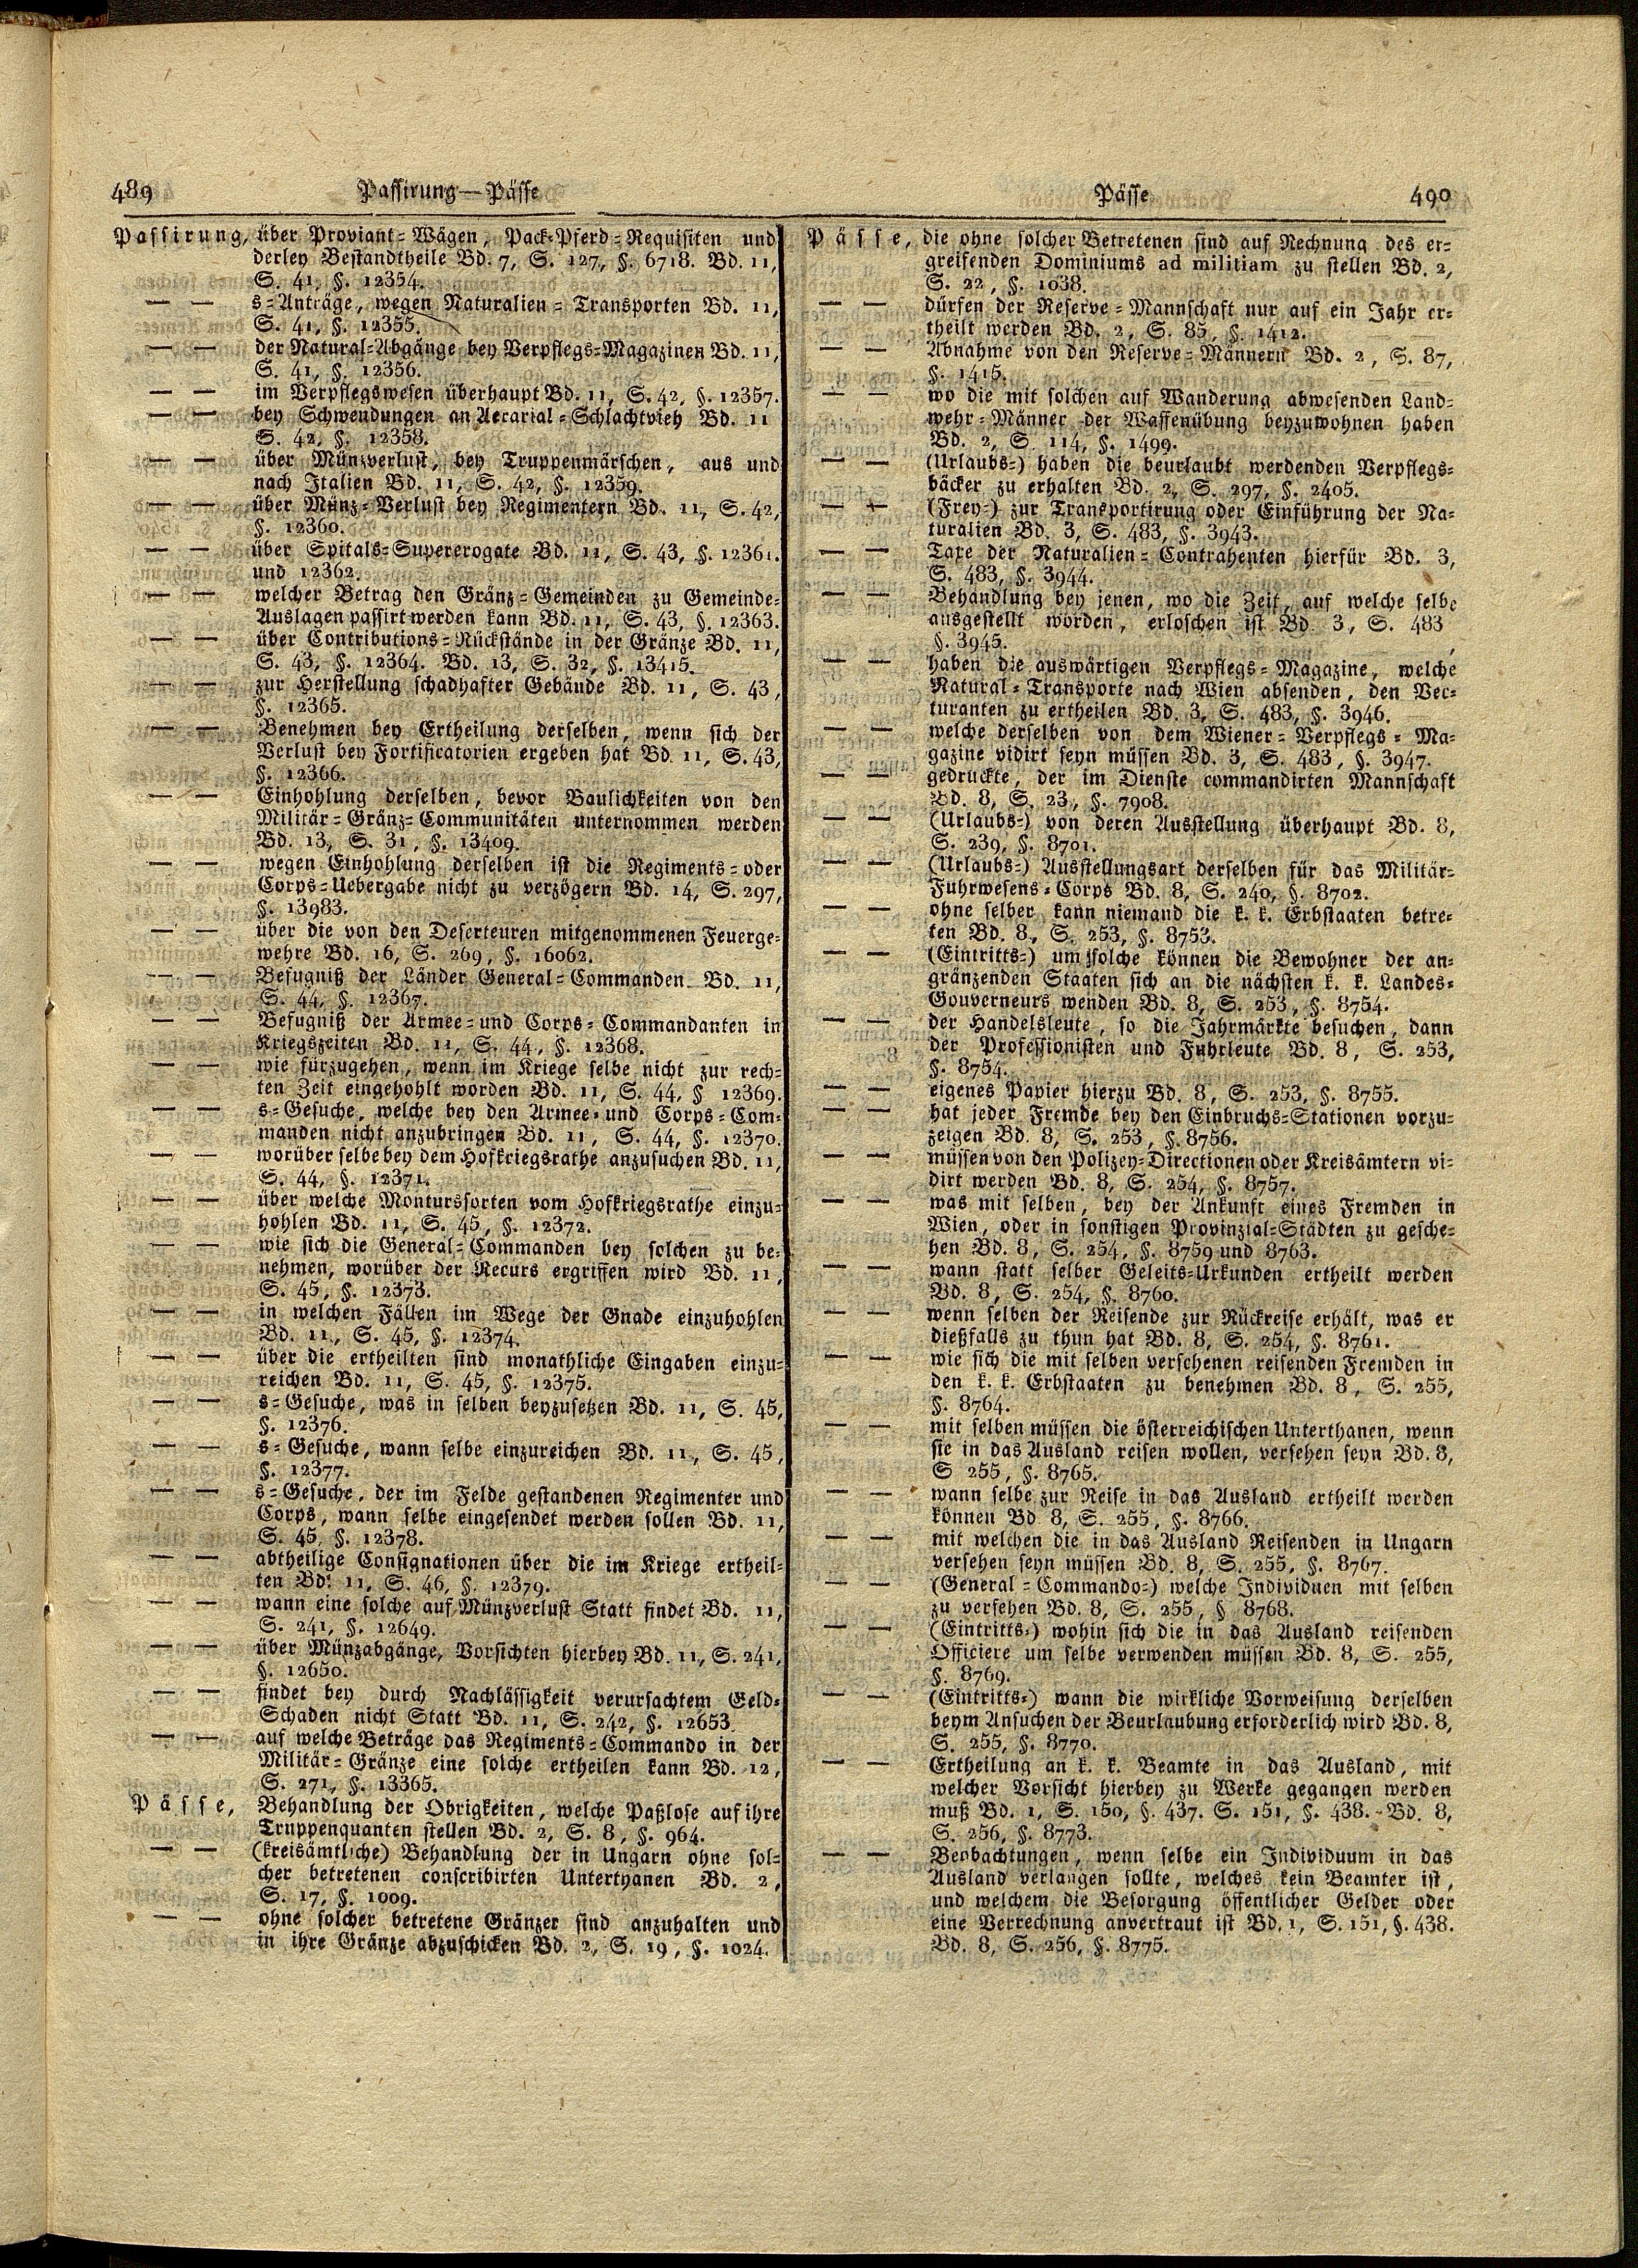 489 Passirung — Pässe
Passirung, über Proviant=Wägen, Pack=Pferd=Requisiten und
derley Bestandtheile Bd. 7, S. 127, §. 6718. Bd. 11,
S. 41, §. 12354.
— — s=Anträge, wegen Naturalien=Transporten Bd. 11,
S. 41, §. 12355.
— — der Natural=Abgänge bey Verpflegs=Magazinen Bd. 11,
S. 41, §. 12356.
— — im Verpflegswesen überhaupt Bd. 11, S. 42, §. 12357.
— — bey Schwendungen an Aerarial=Schlachtvieh Bd. 11
S. 42, §. 12358.
— — über Münzverlust, bey Truppenmärschen, aus und
nach Italien Bd. 11, S. 42, §. 12359.
— — über Münz=Verlust bey Regimentern Bd. 11, S. 42,
§. 12360.
— — über Spitals=Supererogate Bd. 11, S. 43, §. 12361.
und 12362.
— — welcher Betrag den Gränz=Gemeinden zu Gemeinde=
Auslagen passirt werden kann Bd. 11, S. 43, §. 12363.
— — über Contributions=Rückstände in der Gränze Bd. 11,
S. 43, §. 12364. Bd. 13, S. 32, §. 13415.
— — zur Herstellung schadhafter Gebäude Bd. 11, S. 43,
§. 12365.
— — Benehmen bey Ertheilung derselben, wenn sich der
Verlust bey Fortificatorien ergeben hat Bd. 11, S. 43,
§. 12366.
— — Einhohlung derselben, bevor Baulichkeiten von den
Militär=Gränz=Communitäten unternommen werden
Bd. 13, S. 31, §. 13409.
— — wegen Einhohlung derselben ist die Regiments= oder
Corps=Uebergabe nicht zu verzögern Bd. 14, S. 297,
§. 13983.
— — über die von den Deserteuren mitgenommenen Feuerge=
wehre Bd. 16, S. 269, §. 16062.
— — Befugniß der Länder General=Commanden Bd. 11,
S. 44, §. 12367.
— — Befugniß der Armee= und Corps=Commandanten in
Kriegszeiten Bd. 11, S. 44, §. 12368.
— — wie fürzugehen, wenn im Kriege selbe nicht zur rech=
ten Zeit eingehohlt worden Bd. 11, S. 44, § 12369.
— — s=Gesuche, welche bey den Armee= und Corps=Com=
manden nicht anzubringen Bd. 11, S. 44, §. 12370.
— — worüber selbe bey dem Hofkriegsrathe anzusuchen Bd. 11,
S. 44, §. 12371.
— — über welche Montursorten vom Hofkriegsrathe einzu=
hohlen Bd. 11, S. 45, §. 12372.
— — wie sich die General=Commanden bey solchen zu be=
nehmen, worüber der Recurs ergriffen wird Bd. 11,
S. 45, §. 12373.
— — in welchen Fällen im Wege der Gnade einzuhohlen
Bd. 11, S. 45, §. 12374.
— — über die ertheilten sind monathliche Eingaben einzu=
reichen Bd. 11, S. 45, §. 12375.
— — s=Gesuche, was in selben beyzusetzen Bd. 11, S. 45,
§. 12376.
— — s=Gesuche, wann selbe einzureichen Bd. 11, S. 45,
§. 12377.
— — s=Gesuche, der im Felde gestandenen Regimenter und
Corps, wann selbe eingesendet werden sollen Bd. 11,
S. 45, §. 12378.
— — abtheilige Consignationen über die im Kriege ertheil=
ten Bd. 11, S. 46, §. 12379.
— — wann eine solche auf Münzverlust Statt findet Bd. 11,
S. 241, §. 12649.
— — über Münzabgänge, Vorsichten hierbey Bd. 11, S. 241,
§. 12650.
— — findet bey durch Nachlässigkeit verursachtem Geld=
Schaden nicht Statt Bd. 11, S. 242, §. 12653
— — auf welche Beträge das Regiments=Commando in der
Militär=Gränze eine solche ertheilen kann Bd. 12,
S. 271, §. 13365.
Pässe, Behandlung der Obrigkeiten, welche Paßlose auf ihre
Truppenquanten stellen Bd. 2, S. 8, §. 964.
— — (kreisämtliche) Behandlung der in Ungarn ohne sol=
cher betretenen conscribirten Unterthanen Bd. 2,
S. 17, §. 1009.
— — ohne solcher betretene Gränzer sind anzuhalten und
in ihre Gränze abzuschicken Bd. 2, S. 19, §. 1024.
Pässe 490
Pässe, die ohne solcher Betretenen sind auf Rechnung des er=
greifenden Dominiums ad militiam zu stellen Bd. 2,
S. 22, §. 1038.
— — dürfen der Reserve=Mannschaft nur auf ein Jahr er=
theilt werden Bd. 2, S. 85, §. 1412.
— — Abnahme von den Reserve=Männern Bd. 2, S. 87,
§. 1415.
— — wo die mit solchen auf Wanderung abwesenden Land=
wehr=Männer der Waffenübung beyzuwohnen haben
Bd. 2, S. 114, §. 1499.
— — (Urlaubs=) haben die beurlaubt werdenden Verpflegs=
bäcker zu erhalten Bd. 2, S. 297, §. 2405.
— — (Frey=) zur Transportirung oder Einführung der Na=
turalien Bd. 3, S. 483, §. 3943.
— — Taxe der Naturalien=Contrahenten hierfür Bd. 3,
S. 483, §. 3944.
— — Behandlung bey jenen, wo die Zeit, auf welche selbe
ausgestellt worden, erloschen ist Bd. 3, S. 483,
§. 3945.
— — haben die auswärtigen Verpflegs=Magazine, welche
Natural=Transporte nach Wien absenden, den Vec=
turanten zu ertheilen Bd. 3, S. 483, §. 3946.
— — welche derselben von dem Wiener=Verpflegs=Ma=
gazine vidirt seyn müssen Bd. 3, S. 483, §. 3947.
— — gedruckte, der im Dienste commandirten Mannschaft
Bd. 8, S. 23, §. 7908.
— — (Urlaubs=) von deren Ausstellung überhaupt Bd. 8,
S. 239, §. 8701.
— — (Urlaubs=) Ausstellungsart derselben für das Militär=
Fuhrwesens=Corps Bd. 8, S. 240, §. 8702.
— — ohne selber kann niemand die k. k. Erbstaaten betre=
ten Bd. 8, S. 253, §. 8753.
— — (Eintritts=) um solche können die Bewohner der an=
gränzenden Staaten sich an die nächsten k. k. Landes=
Gouverneurs wenden Bd. 8, S. 253, §. 8754.
— — der Handelsleute, so die Jahrmärkte besuchen, dann
der Professionisten und Fuhrleute Bd. 8, S. 253,
§. 8754.
— — eigenes Papier hierzu Bd. 8, S. 253, §. 8755.
— — hat jeder Fremde bey den Einbruchs=Stationen vorzu=
zeigen Bd. 8, S. 253, §. 8756.
— — müssen von den Polizey=Directionen oder Kreisämtern vi=
dirt werden Bd. 8, S. 254, §. 8757.
— — was mit selben, bey der Ankunft eines Fremden in
Wien, oder in sonstigen Provinzial=Städten zu gesche=
hen Bd. 8, S. 254, §. 8759 und 8763.
— — wann statt selber Geleits=Urkunden ertheilt werden
Bd. 8, S. 254, §. 8760.
— — wenn selben der Reisende zur Rückreise erhält, was er
dießfalls zu thun hat Bd. 8, S. 254, §. 8761.
— — wie sich die mit selben versehenen reisenden Fremden in
den k. k. Erbstaaten zu benehmen Bd. 8, S. 255,
§. 8764.
— — mit selben müssen die österreichischen Unterthanen, wenn
sie in das Ausland reisen wollen, versehen seyn Bd. 8,
S 255, §. 8765.
— — wann selbe zur Reise in das Ausland ertheilt werden
können Bd 8, S. 255, §. 8766.
— — mit welchen die in das Ausland Reisenden in Ungarn
versehen seyn müssen Bd. 8, S. 255, §. 8767.
— — (General=Commando=) welche Individuen mit selben
zu versehen Bd. 8, S. 255, § 8768.
— — (Eintritts=) wohin sich die in das Ausland reisenden
Officiere um selbe verwenden müssen Bd. 8, S. 255,
§. 8769.
— — (Eintritts=) wann die wirkliche Vorweisung derselben
beym Ansuchen der Beurlaubung erforderlich wird Bd. 8,
S. 255, §. 8770.
— — Ertheilung an k. k. Beamte in das Ausland, mit
welcher Vorsicht hierbey zu Werke gegangen werden
muß Bd. 1, S. 150, §. 437. S. 151, §. 438. Bd. 8,
S. 256, §. 8773.
— — Beobachtungen, wenn selbe ein Individuum in das
Ausland verlangen sollte, welches kein Beamter ist,
und welchem die Besorgung öffentlicher Gelder oder
eine Verrechnung anvertraut ist Bd. 1, S. 151, §. 438.
Bd. 8, S. 256, §. 8775.